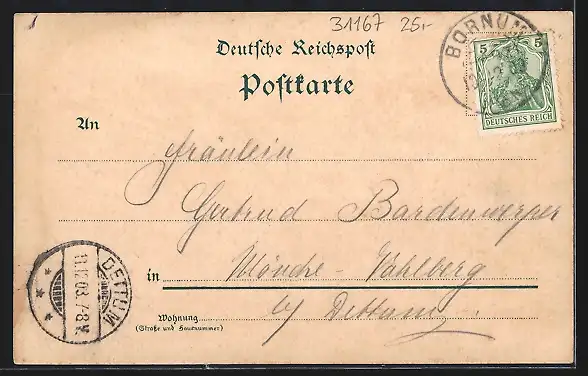 31167 25,-
Deutsche Reichspost
Postkarte
BORNUM
5 5
DEUTSCHES REICH
An
Fräulein
Gertrud Bardenwerper
in Mönche-Vahlberg
Wohnung
(Straße und Hausnummer)
b/ Dettum
DETTUM
11.12.03.7-8V.